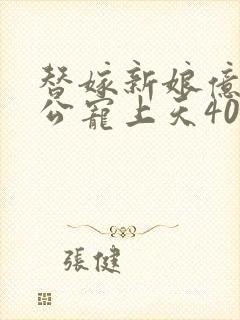 替嫁新娘億
公寵上天40
張健